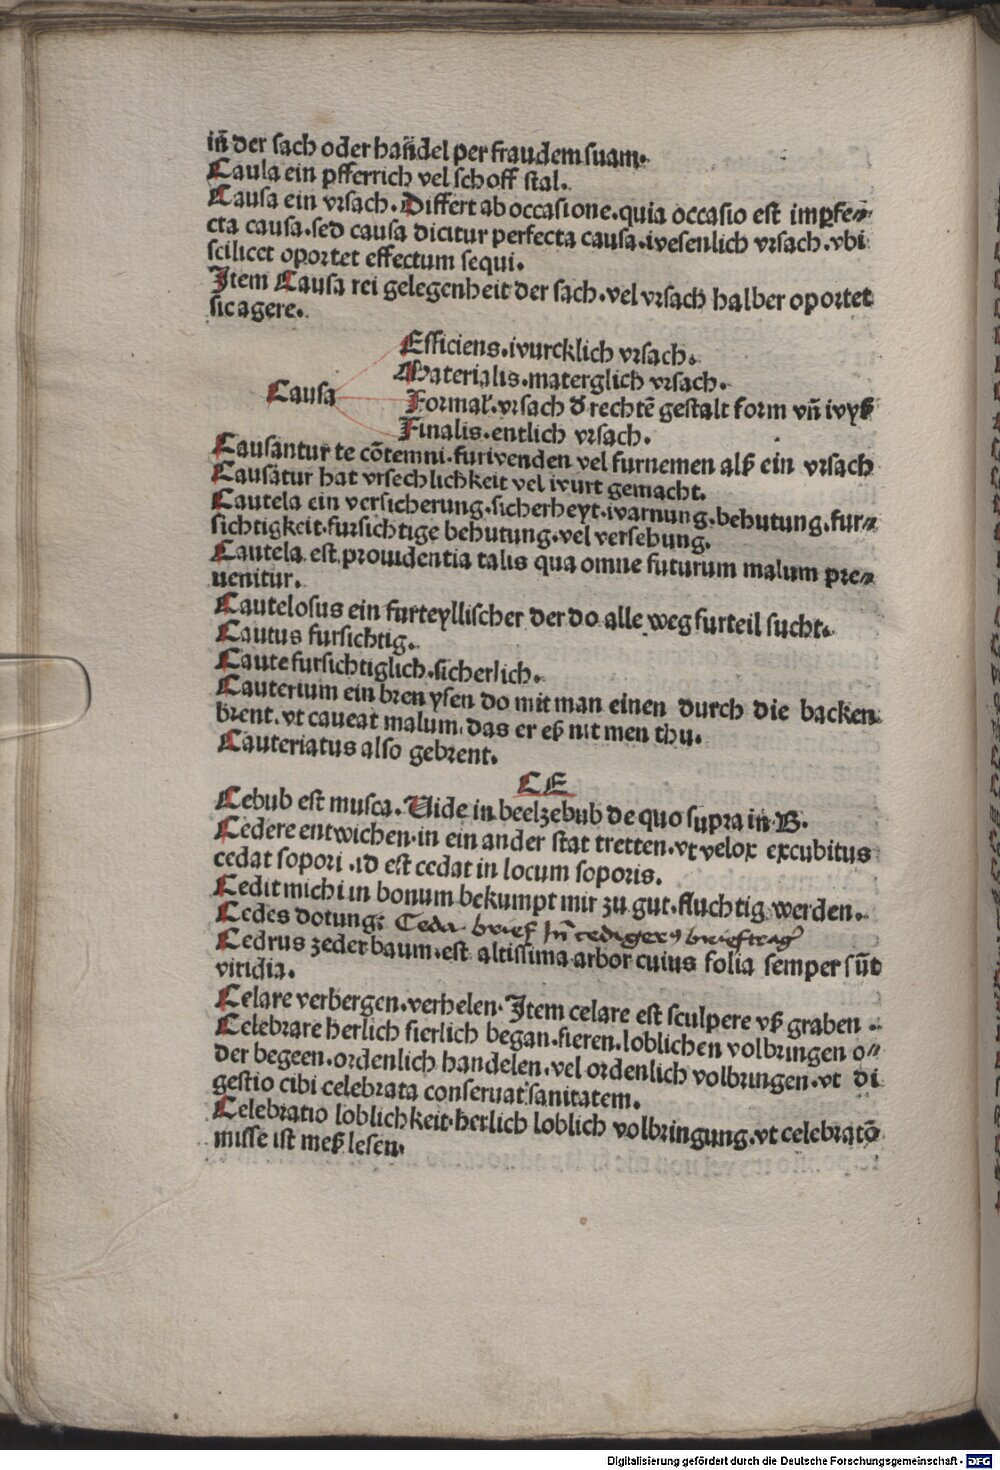 in̄ der sach oder han̄del per fraudem suam.
Caula ein pfferrich vel schoff stal.
Causa ein vrsach. Differt ab occasione. quia occasio est imꝑfe⸗
cta causa. sed causa dicitur perfecta causa. ivesenlich vrsach. vbi
scilicet oportet effectum sequi.
Item Causa rei gelegenheit der sach. vel vrsach halber oportet
sic agere.
Efficiens. ivurcklich vrsach.
Materialis. materglich vrsach.
Causa
Formal. vrsach d̕ rechtē gestalt form vn̄ ivyß
Finalis. entlich vrsach.
Causantur te cōtemni. furivenden vel furnemen alß ein vrsach
Causatur hat vrsechlichkeit vel ivurt gemacht.
Cautela ein versicherung. sicherheyt. ivarnung. behutung. fur⸗
sichtigkeit. fursichtige behutung. vel versehung.
Cautela est prouidentia talis qua omne futurum malum pre⸗
uenitur.
Cautelosus ein furteyllischer der do alle weg furteil sucht.
Cautus fursichtig.
Caute fursichtiglich. sicherlich.
Cauterium ein bren ysen do mit man einen durch die backen
brent. vt caueat malum. das er eß nit men thu.
Cauteriatus also gebrent.
CE
Cebub est musca. Uide in beelzebub de quo supra in B.
Cedere entwichen. in ein ander stat tretten. vt velox excubitus
cedat sopori. id est cedat in locum soporis.
Cedit michi in bonum bekumpt mir zu gut. fluchtig werden.
Cedes dotung: Ceda brief In̄ cedigerꝰ brieftrag̕
Cedrus zeder baum. est altissima arbor cuius folia semper sūt
viridia.
Celare verbergen. verhelen. Item celare est sculpere vß graben.
Celebrare herlich fierlich began. fieren. loblichen volbringen o⸗
der begeen. ordenlich handelen. vel ordenlich volbringen. vt di
gestio cibi celebrata conseruat sanitatem.
Celebratio loblichkeit. herlich loblich volbringung. vt celebratō
misse ist meß lesen.
Digitalisierung gefördert durch die Deutsche Forschungsgemeinschaft - DFG